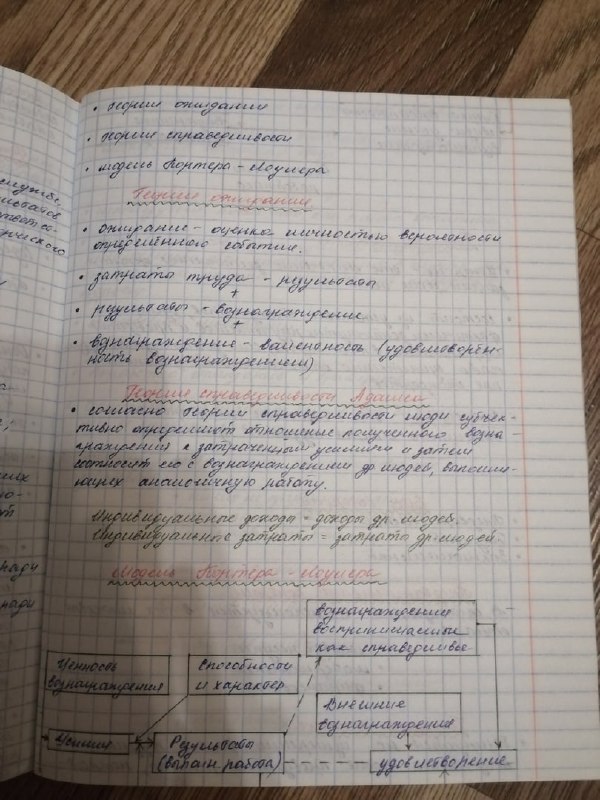 • теория ожидания
• теория справедливости
• модель Портера - Лоулера
Теория ожидания
• ожидание - оценка личностью вероятности
определённого события.
• затраты труда - результаты
+
• результаты - вознаграждение
+
• вознаграждение - валентность (удовлетворён-
ность вознаграждением)
Теория справедливости Адамса
• согласно теории справедливости люди субъек-
тивно определяют отношение полученного возна-
граждения к затраченным усилиям и затем
соотносят его с вознаграждением др людей, выполня-
ющих аналогичную работу.
Индивидуальные доходы = доходы др. людей.
Индивидуальные затраты = затраты др. людей.
Модель Портера - Лоулера
вознаграждения
воспринимаемые
как справедливые
Ценность
вознаграждения
Способности
и характер
Внешние
вознаграждения
Усилия
Результаты
(выполн. работа)
удовлетворение